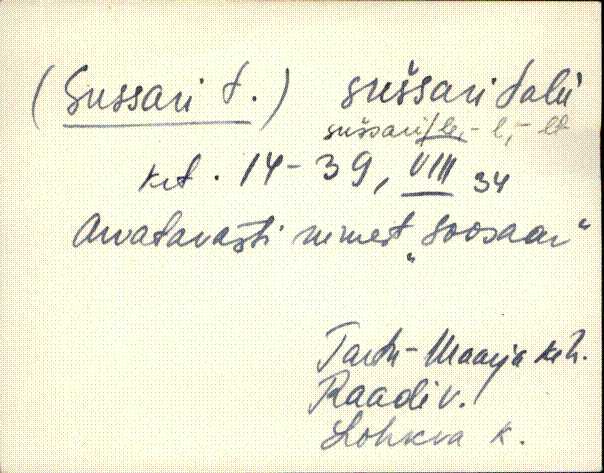 (Sussari t.) suššari talu
suššari/le, - l, - lt
krt. 14-39, VIII 34
Arvatavasti nimest „Soosaar"
Tartu-Maarja kih.
Raadi v.
Lohkva k.